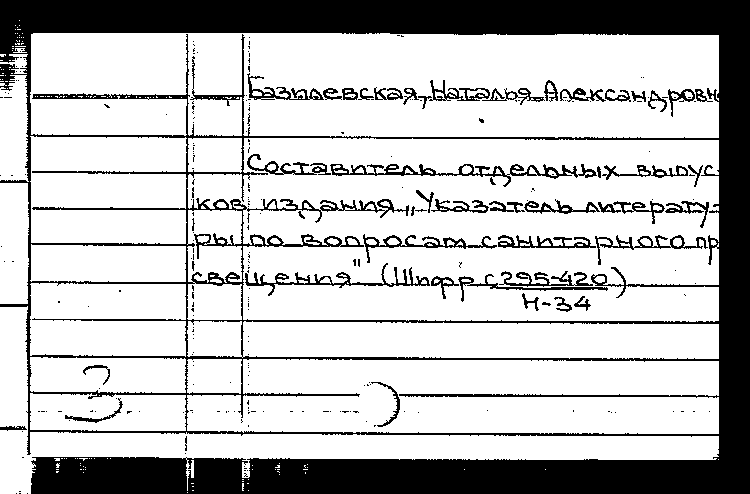 Базилевская, Наталья Александровн
Составитель отдельных выпус-
ков издания „Указатель литерату-
ры по вопросам санитарного пр
свещения" (Шифр с 295-420)
Н-34
3